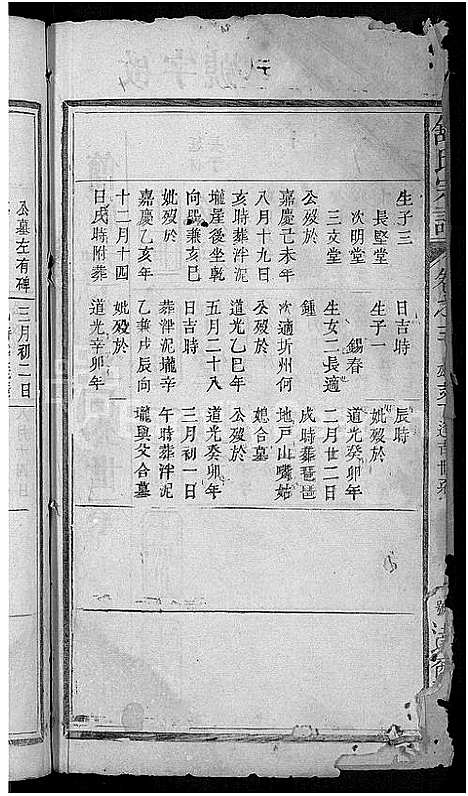 舒氏宗譜
卷之三
生子三
長堅堂
次明堂
三支堂
公歿於
嘉慶己未年
八月十九日
亥時葬泮泥
壠崖後坐乾
向巽兼亥巳
妣歿於
嘉慶乙亥年
十二月十四
日戌時附葬
公墓左有碑
日吉時
生子一
錫春
生女二長適
鍾
次適圻州何
道光乙巳年
五月二十八
日吉時
葬泮泥壠辛
乙兼戌辰向
妣歿於
道光辛卯年
三月初二日
辰時
妣歿於
道光癸卯年
二月廿二日
戌時葬琵琶
地戶山嘴姑
媳合墓
公歿於
道光癸卯年
三月初一日
午時葬泮泥
壠與父合墓